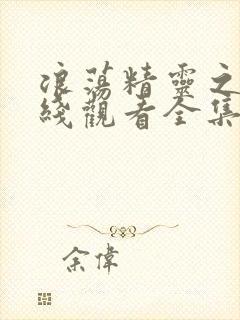 浪蕩精靈之
綫觀看全集
余偉